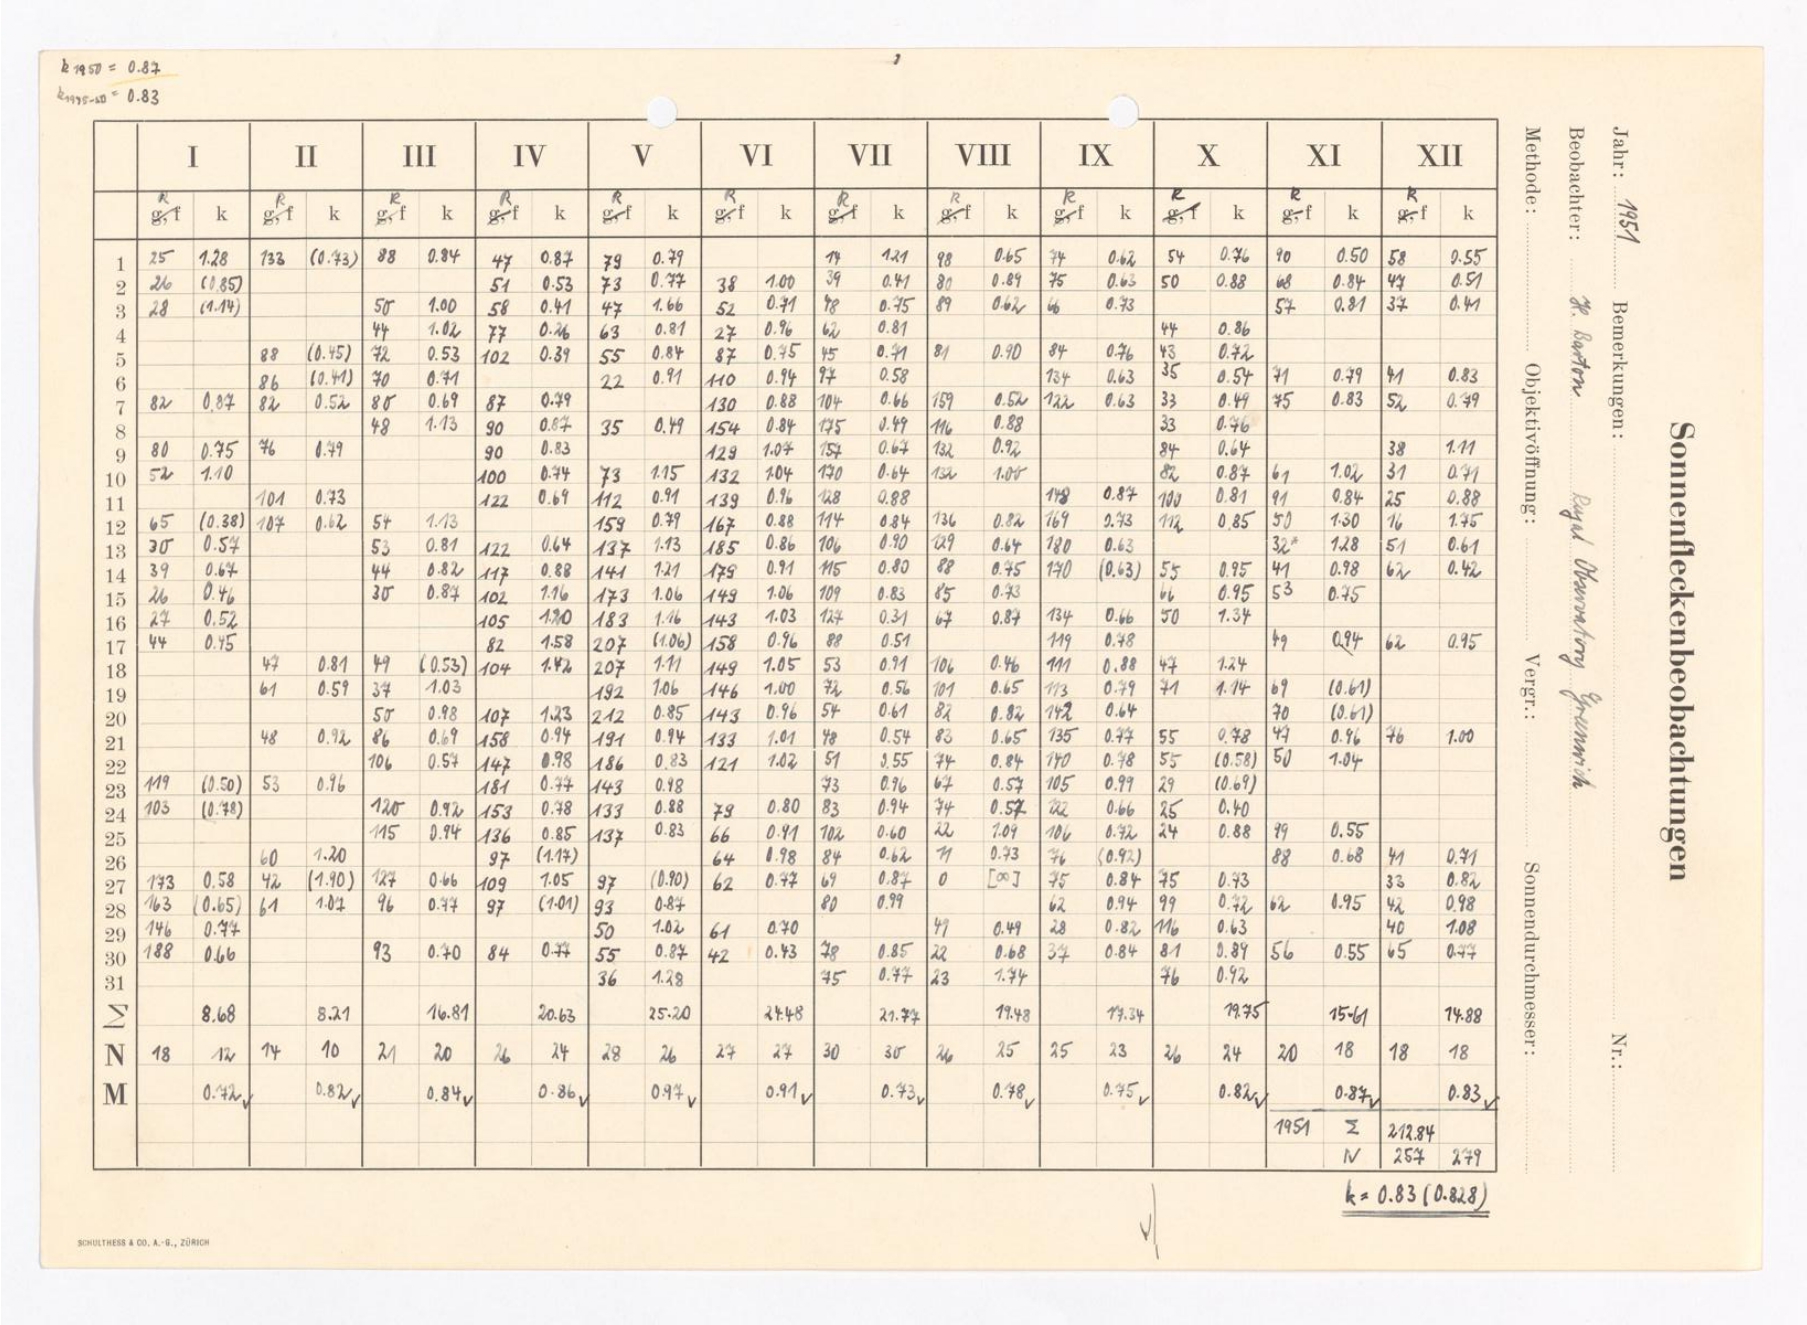 k 1950 = 0.87
= 0.83
Sonnenfleckenbeobachtungen
Jahr: 1951 Bemerkungen: Nr.:
Beobachter: H. Barton Royal Observatory Greenwich
Methode: Objektivöffnung: Vergr.: Sonnendurchmesser:
I II III IV V VI VII VIII IX X XI XII
R R R R R R R R R R R R
g, f k g, f k g, f k g, f k g, f k g, f k g, f k g, f k g, f k g, f k g, f k g, f k
1 25 1.28 133 (0.73) 88 0.84 47 0.87 79 0.79 14 1.21 98 0.65 74 0.62 54 0.76 90 0.50 58 0.55
2 26 (0.85) 51 0.53 73 0.77 38 1.00 39 0.41 80 0.89 75 0.63 50 0.88 68 0.84 47 0.51
3 28 (1.14) 50 1.00 58 0.41 47 1.66 52 0.71 48 0.75 89 0.62 66 0.73 57 0.81 37 0.41
4 44 1.02 77 0.26 63 0.81 27 0.96 62 0.81 44 0.86
5 88 (0.45) 72 0.53 102 0.39 55 0.84 87 0.75 45 0.71 81 0.90 84 0.76 43 0.72
6 86 (0.41) 70 0.71 22 0.91 110 0.94 97 0.58 134 0.63 35 0.54 71 0.79 41 0.83
7 82 0.87 82 0.52 80 0.69 87 0.79 130 0.88 104 0.66 159 0.52 122 0.63 33 0.49 75 0.83 52 0.79
8 48 1.13 90 0.87 35 0.49 154 0.84 175 0.49 116 0.88 33 0.76
9 80 0.75 76 0.79 90 0.83 129 1.07 157 0.67 132 0.92 84 0.64 38 1.11
10 52 1.10 100 0.74 73 1.15 132 1.04 170 0.64 132 1.00 82 0.87 61 1.02 31 0.71
11 101 0.73 122 0.69 112 0.91 139 0.96 128 0.88 148 0.87 100 0.81 91 0.84 25 0.88
12 65 (0.38) 107 0.62 54 1.13 159 0.79 167 0.88 114 0.84 136 0.82 169 0.73 112 0.85 50 1.30 16 1.75
13 30 0.57 53 0.81 122 0.64 137 1.13 185 0.86 106 0.90 129 0.64 180 0.63 32 1.28 51 0.61
14 39 0.67 44 0.82 117 0.88 141 1.21 179 0.91 115 0.80 88 0.75 170 (0.63) 55 0.95 41 0.98 62 0.42
15 26 0.46 30 0.87 102 1.16 173 1.06 149 1.06 109 0.83 85 0.73 66 0.95 53 0.75
16 27 0.52 105 1.20 183 1.16 143 1.03 127 0.31 67 0.87 134 0.66 50 1.34
17 44 0.45 82 1.58 207 (1.06) 158 0.96 88 0.51 119 0.78 49 0.94 62 0.95
18 47 0.81 49 (0.53) 104 1.42 207 1.11 149 1.05 53 0.91 106 0.46 111 0.88 47 1.24
19 61 0.59 37 1.03 192 1.06 146 1.00 72 0.56 101 0.65 113 0.79 71 1.14 69 (0.61)
20 50 0.98 107 1.23 212 0.85 143 0.96 54 0.61 82 0.82 142 0.64 70 (0.61)
21 48 0.92 86 0.69 158 0.94 191 0.94 133 1.01 48 0.54 83 0.65 135 0.77 55 0.78 47 0.96 76 1.00
22 106 0.57 147 0.98 186 0.83 121 1.02 51 0.55 74 0.84 140 0.78 55 (0.58) 50 1.04
23 119 (0.50) 53 0.96 181 0.77 143 0.98 73 0.96 67 0.57 105 0.99 29 (0.69)
24 103 (0.78) 120 0.92 153 0.78 133 0.88 79 0.80 83 0.94 74 0.57 122 0.66 25 0.40
25 115 0.94 136 0.85 137 0.83 66 0.91 102 0.60 22 1.09 106 0.72 24 0.88 99 0.55
26 60 1.20 97 (1.17) 64 0.98 84 0.62 11 0.73 76 (0.92) 88 0.68 41 0.71
27 173 0.58 42 (1.90) 127 0.66 109 1.05 97 (0.90) 62 0.77 69 0.87 0 [∞] 75 0.84 75 0.73 33 0.82
28 163 (0.65) 61 1.07 96 0.77 97 (1.01) 93 0.87 80 0.99 62 0.94 99 0.72 62 0.95 42 0.98
29 146 0.77 50 1.02 61 0.70 49 0.49 28 0.82 116 0.63 40 1.08
30 188 0.66 93 0.70 84 0.77 55 0.87 42 0.43 78 0.85 22 0.68 37 0.84 81 0.89 56 0.55 65 0.77
31 36 1.28 75 0.77 23 1.74 76 0.92
Σ 8.68 8.21 16.81 20.63 25.20 24.48 21.77 19.48 17.34 19.75 15.61 14.88
N 18 12 14 10 21 20 26 24 28 26 27 27 30 30 26 25 25 23 26 24 20 18 18 18
M 0.72 0.82 0.84 0.86 0.97 0.91 0.73 0.78 0.75 0.82 0.87 0.83
1951 Σ 212.84
N 257 279
k = 0.83 (0.828)
SCHULTHESS & CO. A.-G., ZÜRICH